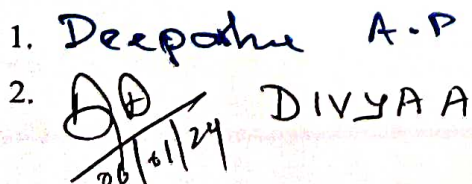 1. Deepasha A.P
2. DIVYA A
06/01/24